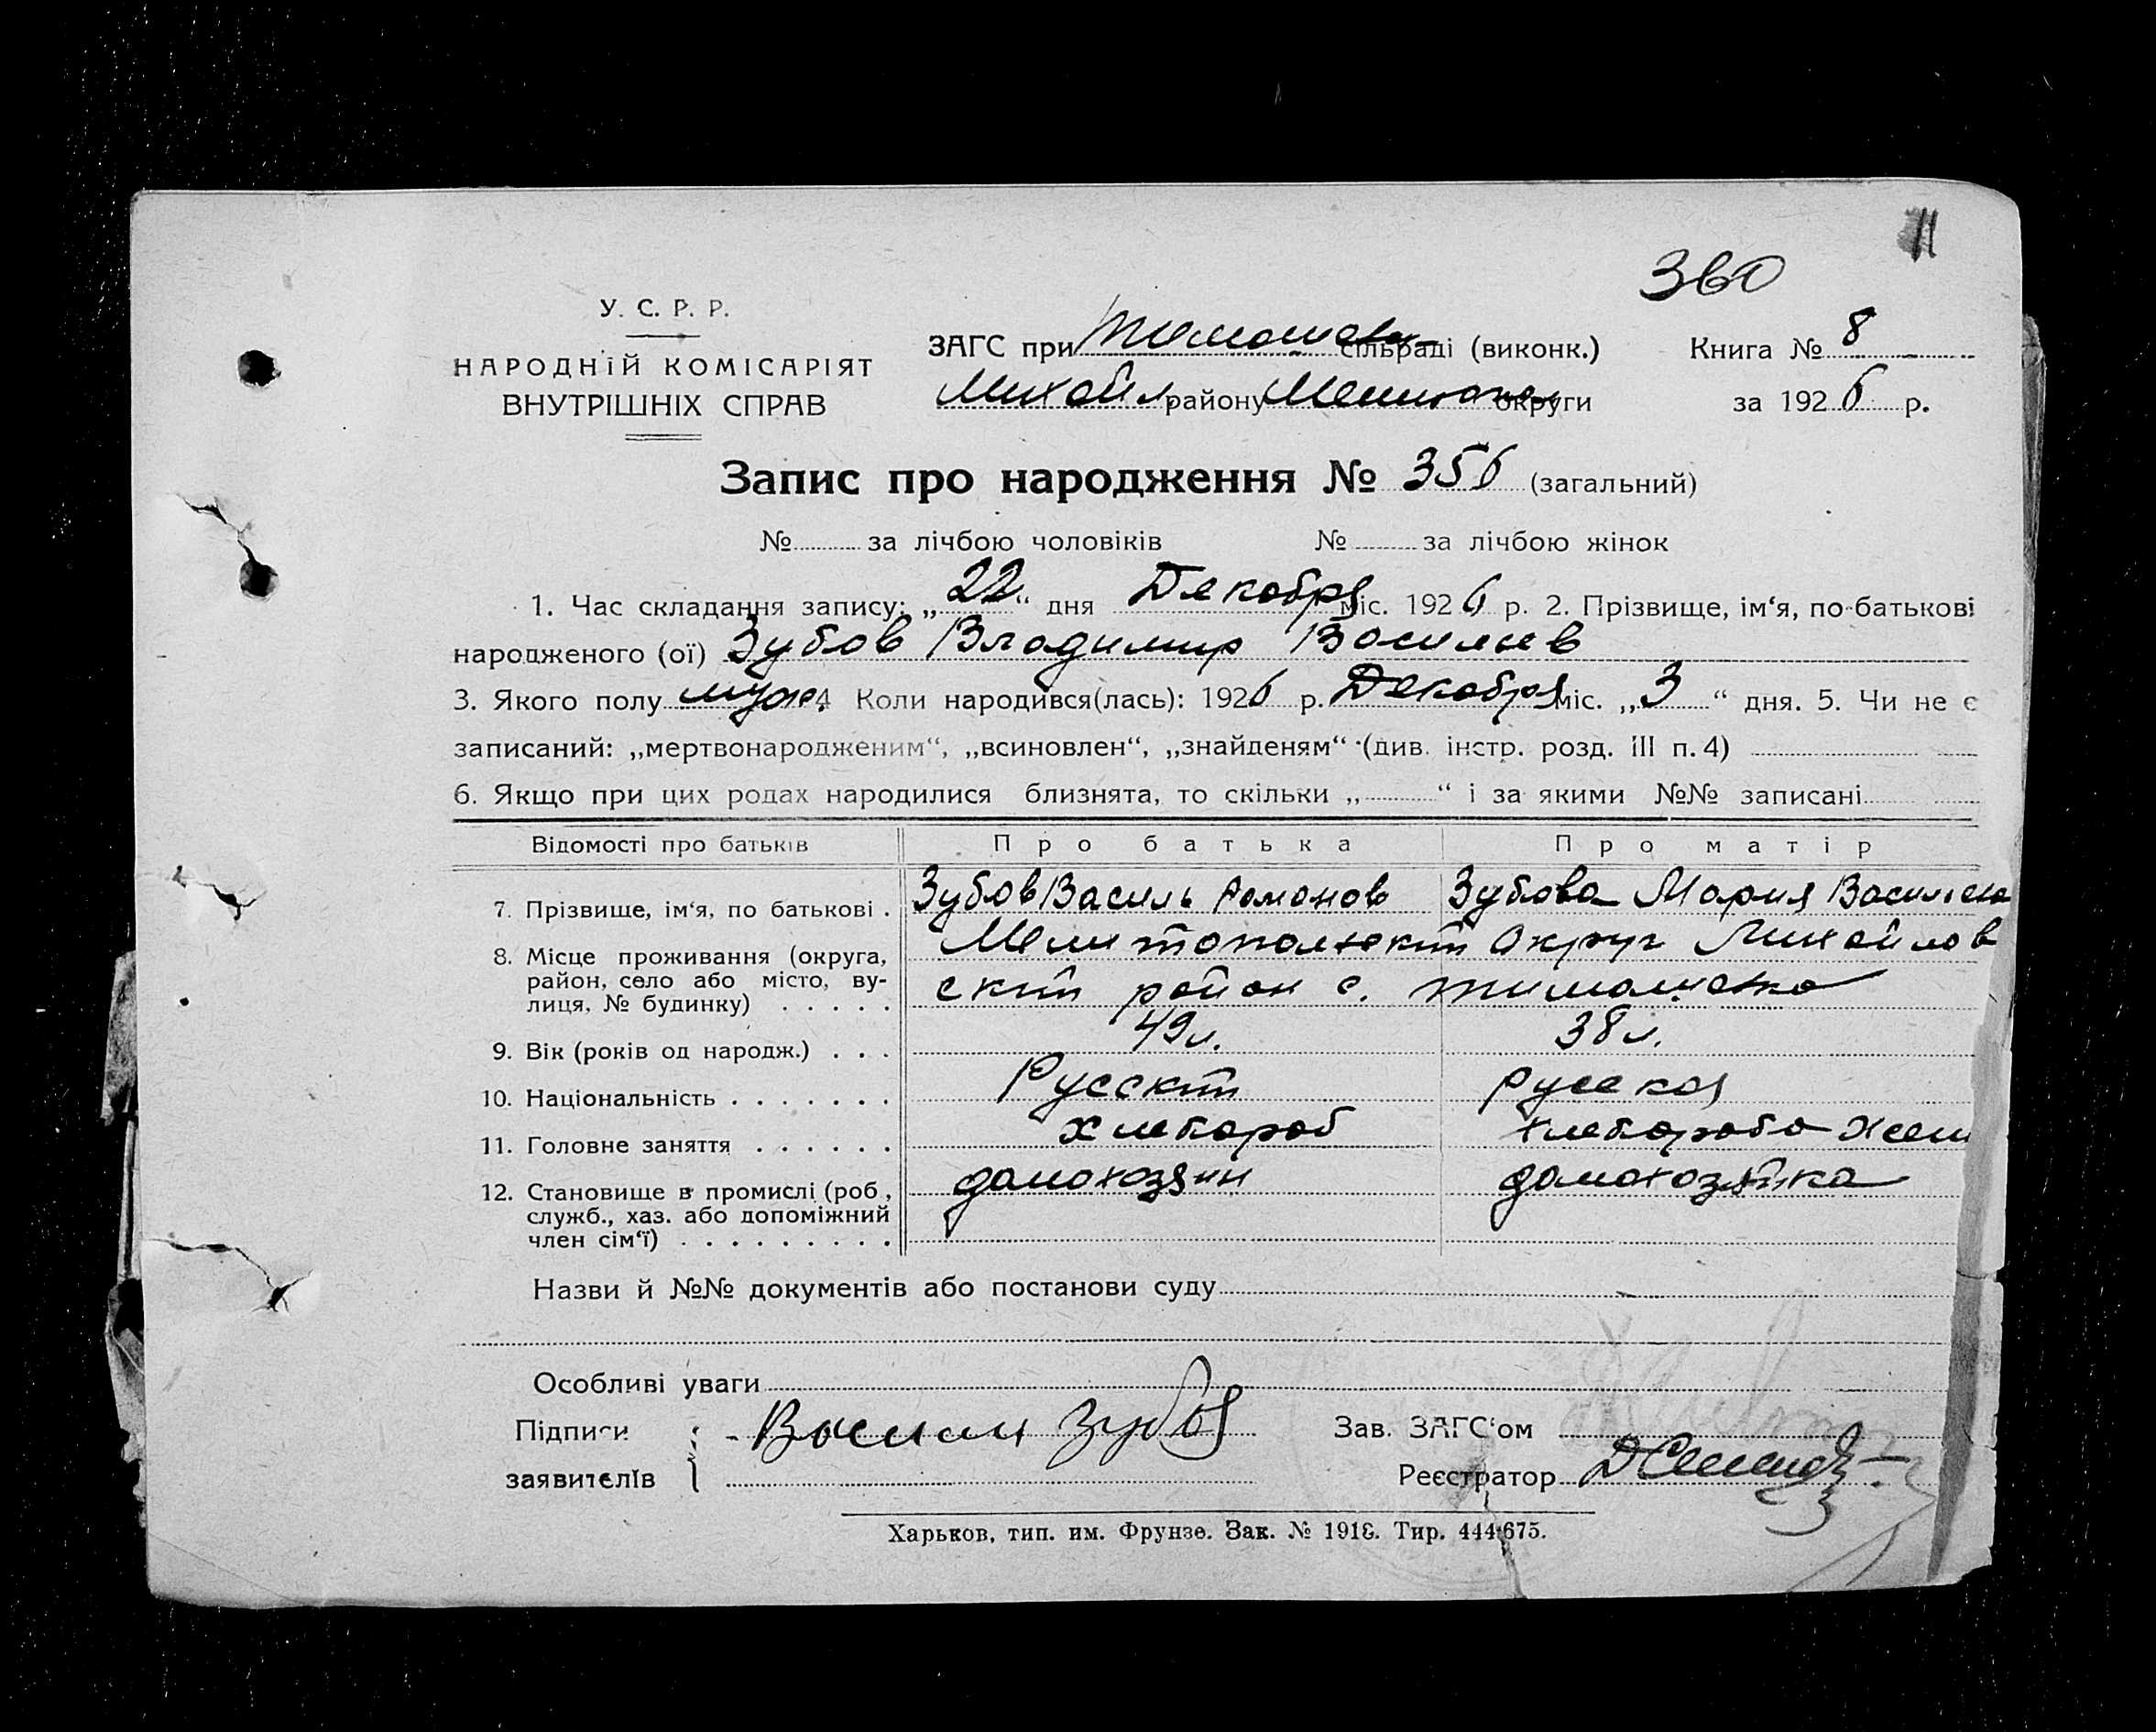 11
360
У. С. Р. Р.
НАРОДНІЙ КОМІСАРІЯТ
ВНУТРІШНІХ СПРАВ
ЗАГС при Тимошевк сільраді (виконк.) Книга № 8
Михайл району Мелитопол округи за 1926 р.
Запис про народження № 356 (загальний)
№ за лічбою чоловіків № за лічбою жінок
1. Час складання запису: „22“ дня Декабря міс. 1926 р. 2. Прізвище, ім‘я, по-батькові
народженого (ої) Зубов Владимир Васильев
3. Якого полу муж. 4 Коли народився(лась): 1926 р. Декабря міс. „3“ дня. 5. Чи не є
записаний: „мертвонародженим“, „всиновлен“, „знайденям“ (див. інстр. розд. III п. 4)
6. Якщо при цих родах народилися близнята, то скільки „ “ і за якими №№ записані
Відомості про батьків Про батька Про матір
7. Прізвище, ім‘я, по батькові . Зубов Василь Романов Зубова Мария Васильев
8. Місце проживання (округа, Мелитопольский Округ Михайлов
район, село або місто, ву- ский район с. Тимошевка
лиця, № будинку) . . . . .
9. Вік (років од народж.) . . . 49 л. 38 л.
10. Національність . . . . . . . Русский русская
11. Головне заняття . . . . . . Хлебороб хлебороба жен
12. Становище в промислі (роб., домохозяин домохозяйка
служб., хаз. або допоміжний
член сім‘ї) . . . . . . . . .
Назви й №№ документів або постанови суду
Особливі уваги
Підписи Василий Зубов Зав. ЗАГС‘ом
заявителів Реєстратор
Харьков, тип. им. Фрунзе. Зак. № 1918. Тир. 444.675.